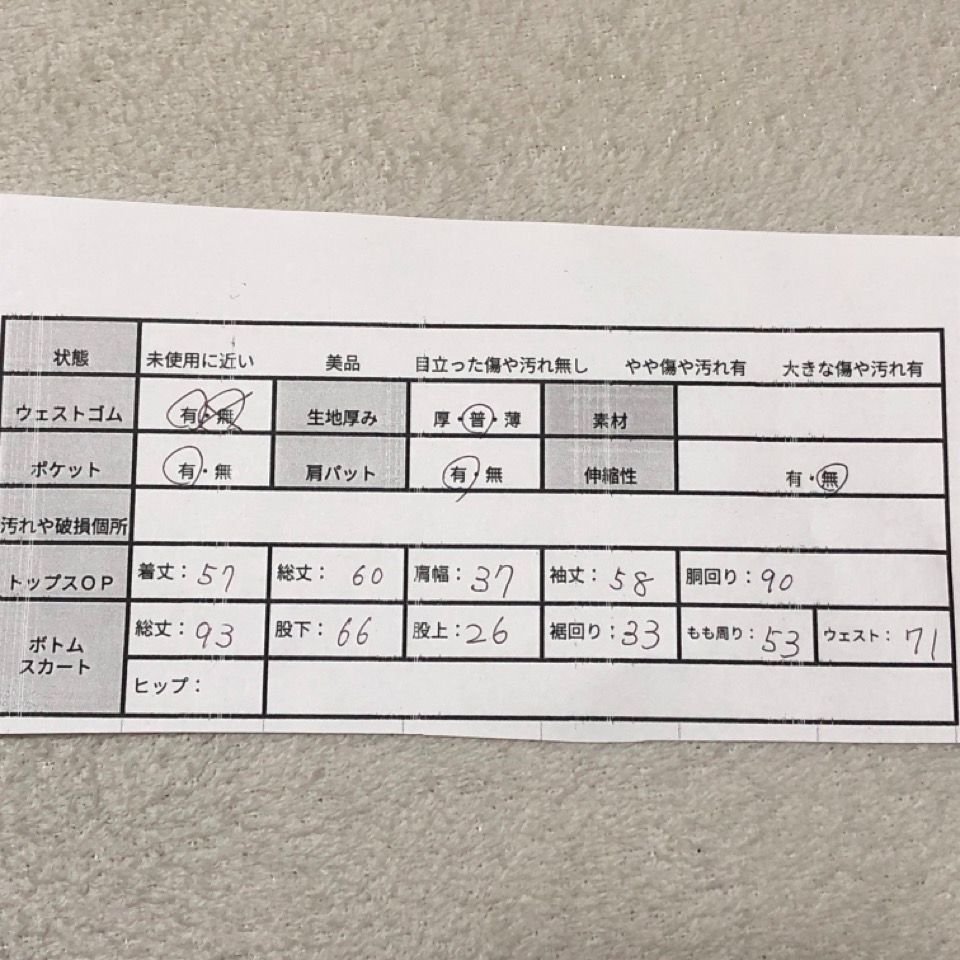 状態 未使用に近い 美品 目立った傷や汚れ無し やや傷や汚れ有 大きな傷や汚れ有
ウェストゴム 有・無 生地厚み 厚・普・薄 素材
ポケット 有・無 肩パット 有・無 伸縮性 有・無
汚れや破損個所
トップスOP 着丈：57 総丈：60 肩幅：37 袖丈：58 胴回り：90
ボトム
スカート
総丈：93 股下：66 股上：26 裾回り：33 もも周り：53 ウェスト：71
ヒップ：